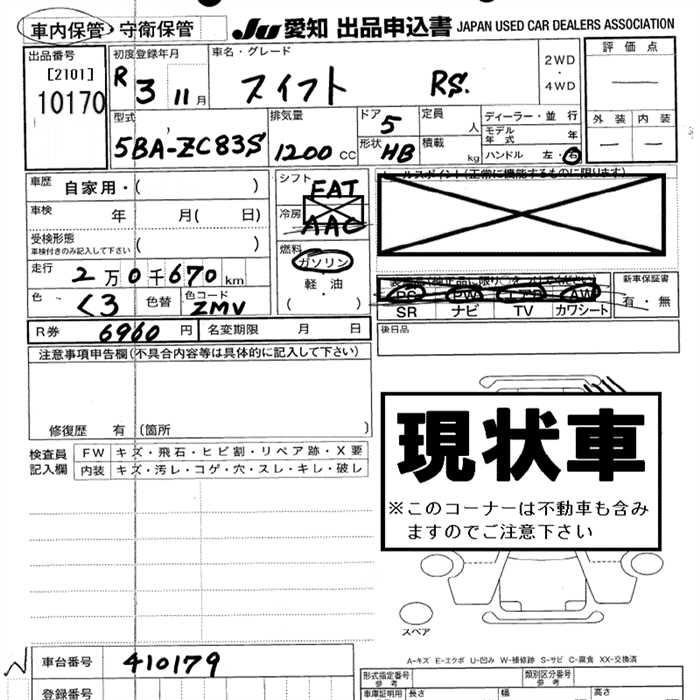 車内保管・守衛保管
JU 愛知 出品申込書 JAPAN USED CAR DEALERS ASSOCIATION
出品番号
[2101]
10170
初度登録年月
R 3 11月
車名・グレード
スイフト RS.
2WD
・
4WD
評価点
―
外装 内装
― ―
型式
5BA-ZC83S
排気量
1200 CC
ドア 5
形状 HB
定員 人
積載 kg
ディーラー・並行
モデル年式 年
ハンドル 左・右
車歴 自家用・( )
車検 年 月( 日)
受検形態
車検付きのみ記入して下さい ( )
走行 2万0千670km
色 くろ 色替
色コード ZMV
シフト FAT
冷房 AAC
燃料
ガソリン
・
軽油
( ・ )
R券 6960円
名変期限 月 日
SR ナビ TV カワシート
新車保証書
有・無
後日品
注意事項申告欄(不具合内容等は具体的に記入して下さい)
修復歴 有 (箇所 )
検査員記入欄
FW キズ・飛石・ヒビ割・リペア跡・X要
内装 キズ・汚レ・コゲ・穴・スレ・キレ・破し
現状車
※このコーナーは不動車も含み
ますのでご注意下さい
スペア
A-キズ E-エクボ U-凹み W-補修跡 S-サビ C-腐食 XX-交換済
車台番号 410179
登録番号
形式指定番号
参考
類別区分番号
参考
車庫証明用
長さ 幅 高さ